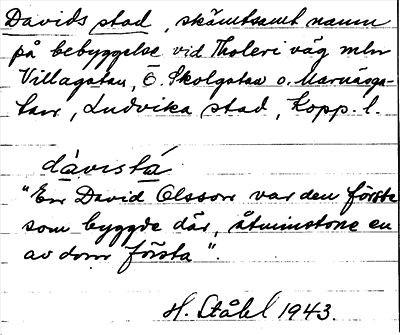 Davids stad, skämtsamt namn
på bebyggelse vid Tholeri väg mln
Villagatan, Ö. Skolgatan o. Marnäsga-
tan, Ludvika stad, Kopp. l.
dàvistá
"En David Olsson var den förste
som byggde där, åtminstone en
av dom första".
H. Ståhl 1943.